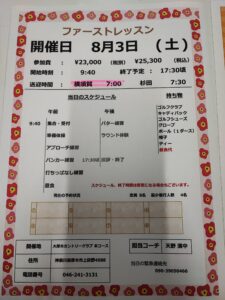 ファーストレッスン
開催日 8月3日 (土)
参加費: ¥23,000 (税別) ¥25,300 (税込)
開始時刻: 9:40 終了予定: 17:30頃
送迎時間: 横須賀 7:00 杉田 7:30
当日のスケジュール 持ち物
9:40 集合・受付
準備体操
アプローチ練習
バンカー練習
打ちっぱなし練習
昼食
パター練習
ラウンド体験
17:30頃
ゴルフクラブ
キャディバック
ゴルフシューズ
グローブ
ボール(1ダース)
帽子
ティー
昼食代
スケジュール、終了時間は変更になる場合もございます。
現在の予約状況
開催地 大厚木カントリークラブ 本コース
住所
電話番号 046-241-3131
担当コーチ 天野
当日の緊急連絡先